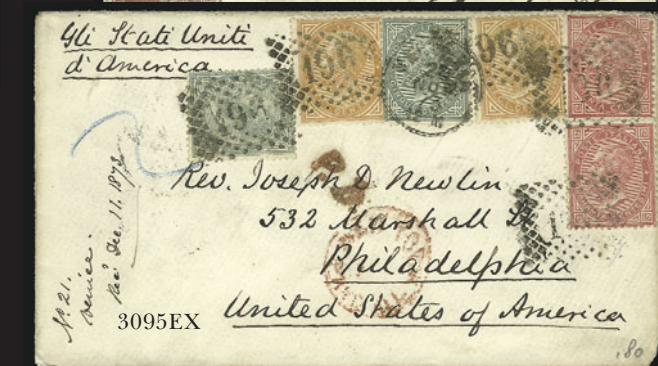 Gli Stati Uniti
d'America.
196
196
196
Rev. Joseph D Newlin
532 Marshall St
Philadelphia
United States of America
No 21.
Venice.
Rec'd Dec. 11. 1873
3095EX
.80